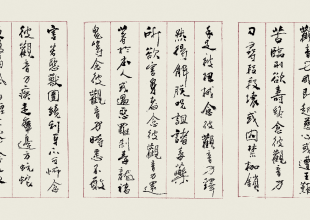 觀音力咸即起慈心或遭王難
苦臨刑欲壽終念彼觀音力
刀尋段段壞或囚禁枷鎖
手足被杻械念彼觀音力釋
然得解脫呪詛諸毒藥
所欲害身者念彼觀音力還
著於本人或遇惡羅剎毒龍諸
鬼等念彼觀音力時悉不敢
害若惡獸圍繞利牙爪可怖念
彼觀音力疾走無邊方蚖蛇